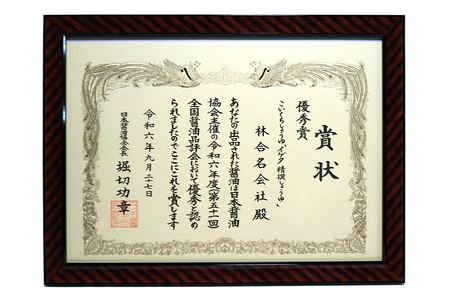 賞状
優秀賞
こいくちしょうゆ「イゲタ 精撰しょうゆ」
林合名会社殿
あなたの出品された醤油は日本醤油
協会主催の令和六年度(第五十一回)
全国醤油品評会において優秀と認め
られましたのでここにこれを賞します
令和六年九月二十七日
日本醤油協会会長
堀切功章